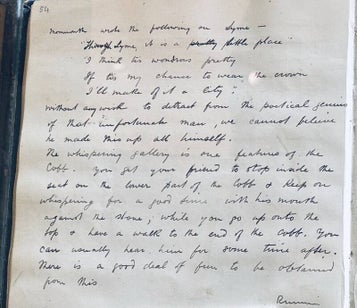 54
Monmouth wrote the following on Lyme —
"Though Lyme, it is a pretty little place
I think tis wondrous pretty
If tis my chance to wear the crown
I'll make of it a city".
without any wish to detract from the poetical genius
of that unfortunate man, we cannot believe
he made this up all himself.
The whispering gallery is one feature of the
Cobb. You get your friend to stop inside the
seat on the lower part of the Cobb & keep on
whispering for a good time with his mouth
against the stone; while you go up onto the
top & have a walk to the end of the Cobb. You
can usually hear him for some time after.
There is a good deal of fun to be obtained
from this